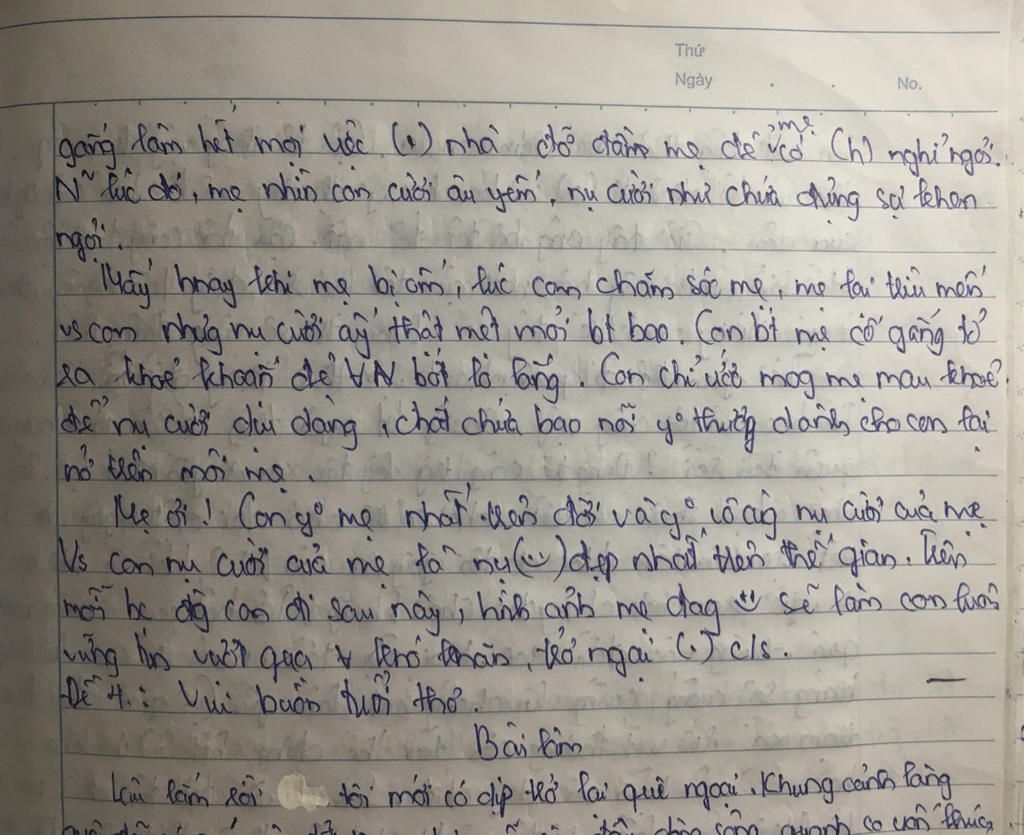 Thứ
Ngày . . No.
gắng làm hết mọi vịêc (.) nhà đỡ đần mẹ để mẹ có (h) nghỉ ngơi.
N~ lúc đó, mẹ nhìn con cười âu yếm, nụ cười như chứa đựng sự khen
ngợi.
Mấy hnay khi mẹ bị ốm, lúc con chăm sóc mẹ, mẹ lại trìu mến
vs con nhưg nụ cười ấy thật mệt mỏi bt bao. Con bt mẹ cố gắng tỏ
ra khoẻ khoắn để ∀N bớt lo lắng. Con chỉ ước mog mẹ mau khoẻ
để nụ cười dịu dàng, chất chứa bao nỗi yº thươg dành cho con lại
nở trên môi mẹ.
Mẹ ơi! Con yº mẹ nhất trên đời và yº vô cùg nụ cười của mẹ
Vs con nụ cười của mẹ là nụ (‿) đẹp nhất trên thế gian. Trên
mỗi bc đg con đi sau này, hình ảnh mẹ đag ‿ sẽ làm con luôn
vững tin vượt qua ∀ khó khăn, trở ngại (.) c/s.
Đề 4.: Vui buồn tuổi thơ.
Bài làm
Lâu lắm rồi tôi mới có dịp trở lại quê ngoại. Khung cảnh làng